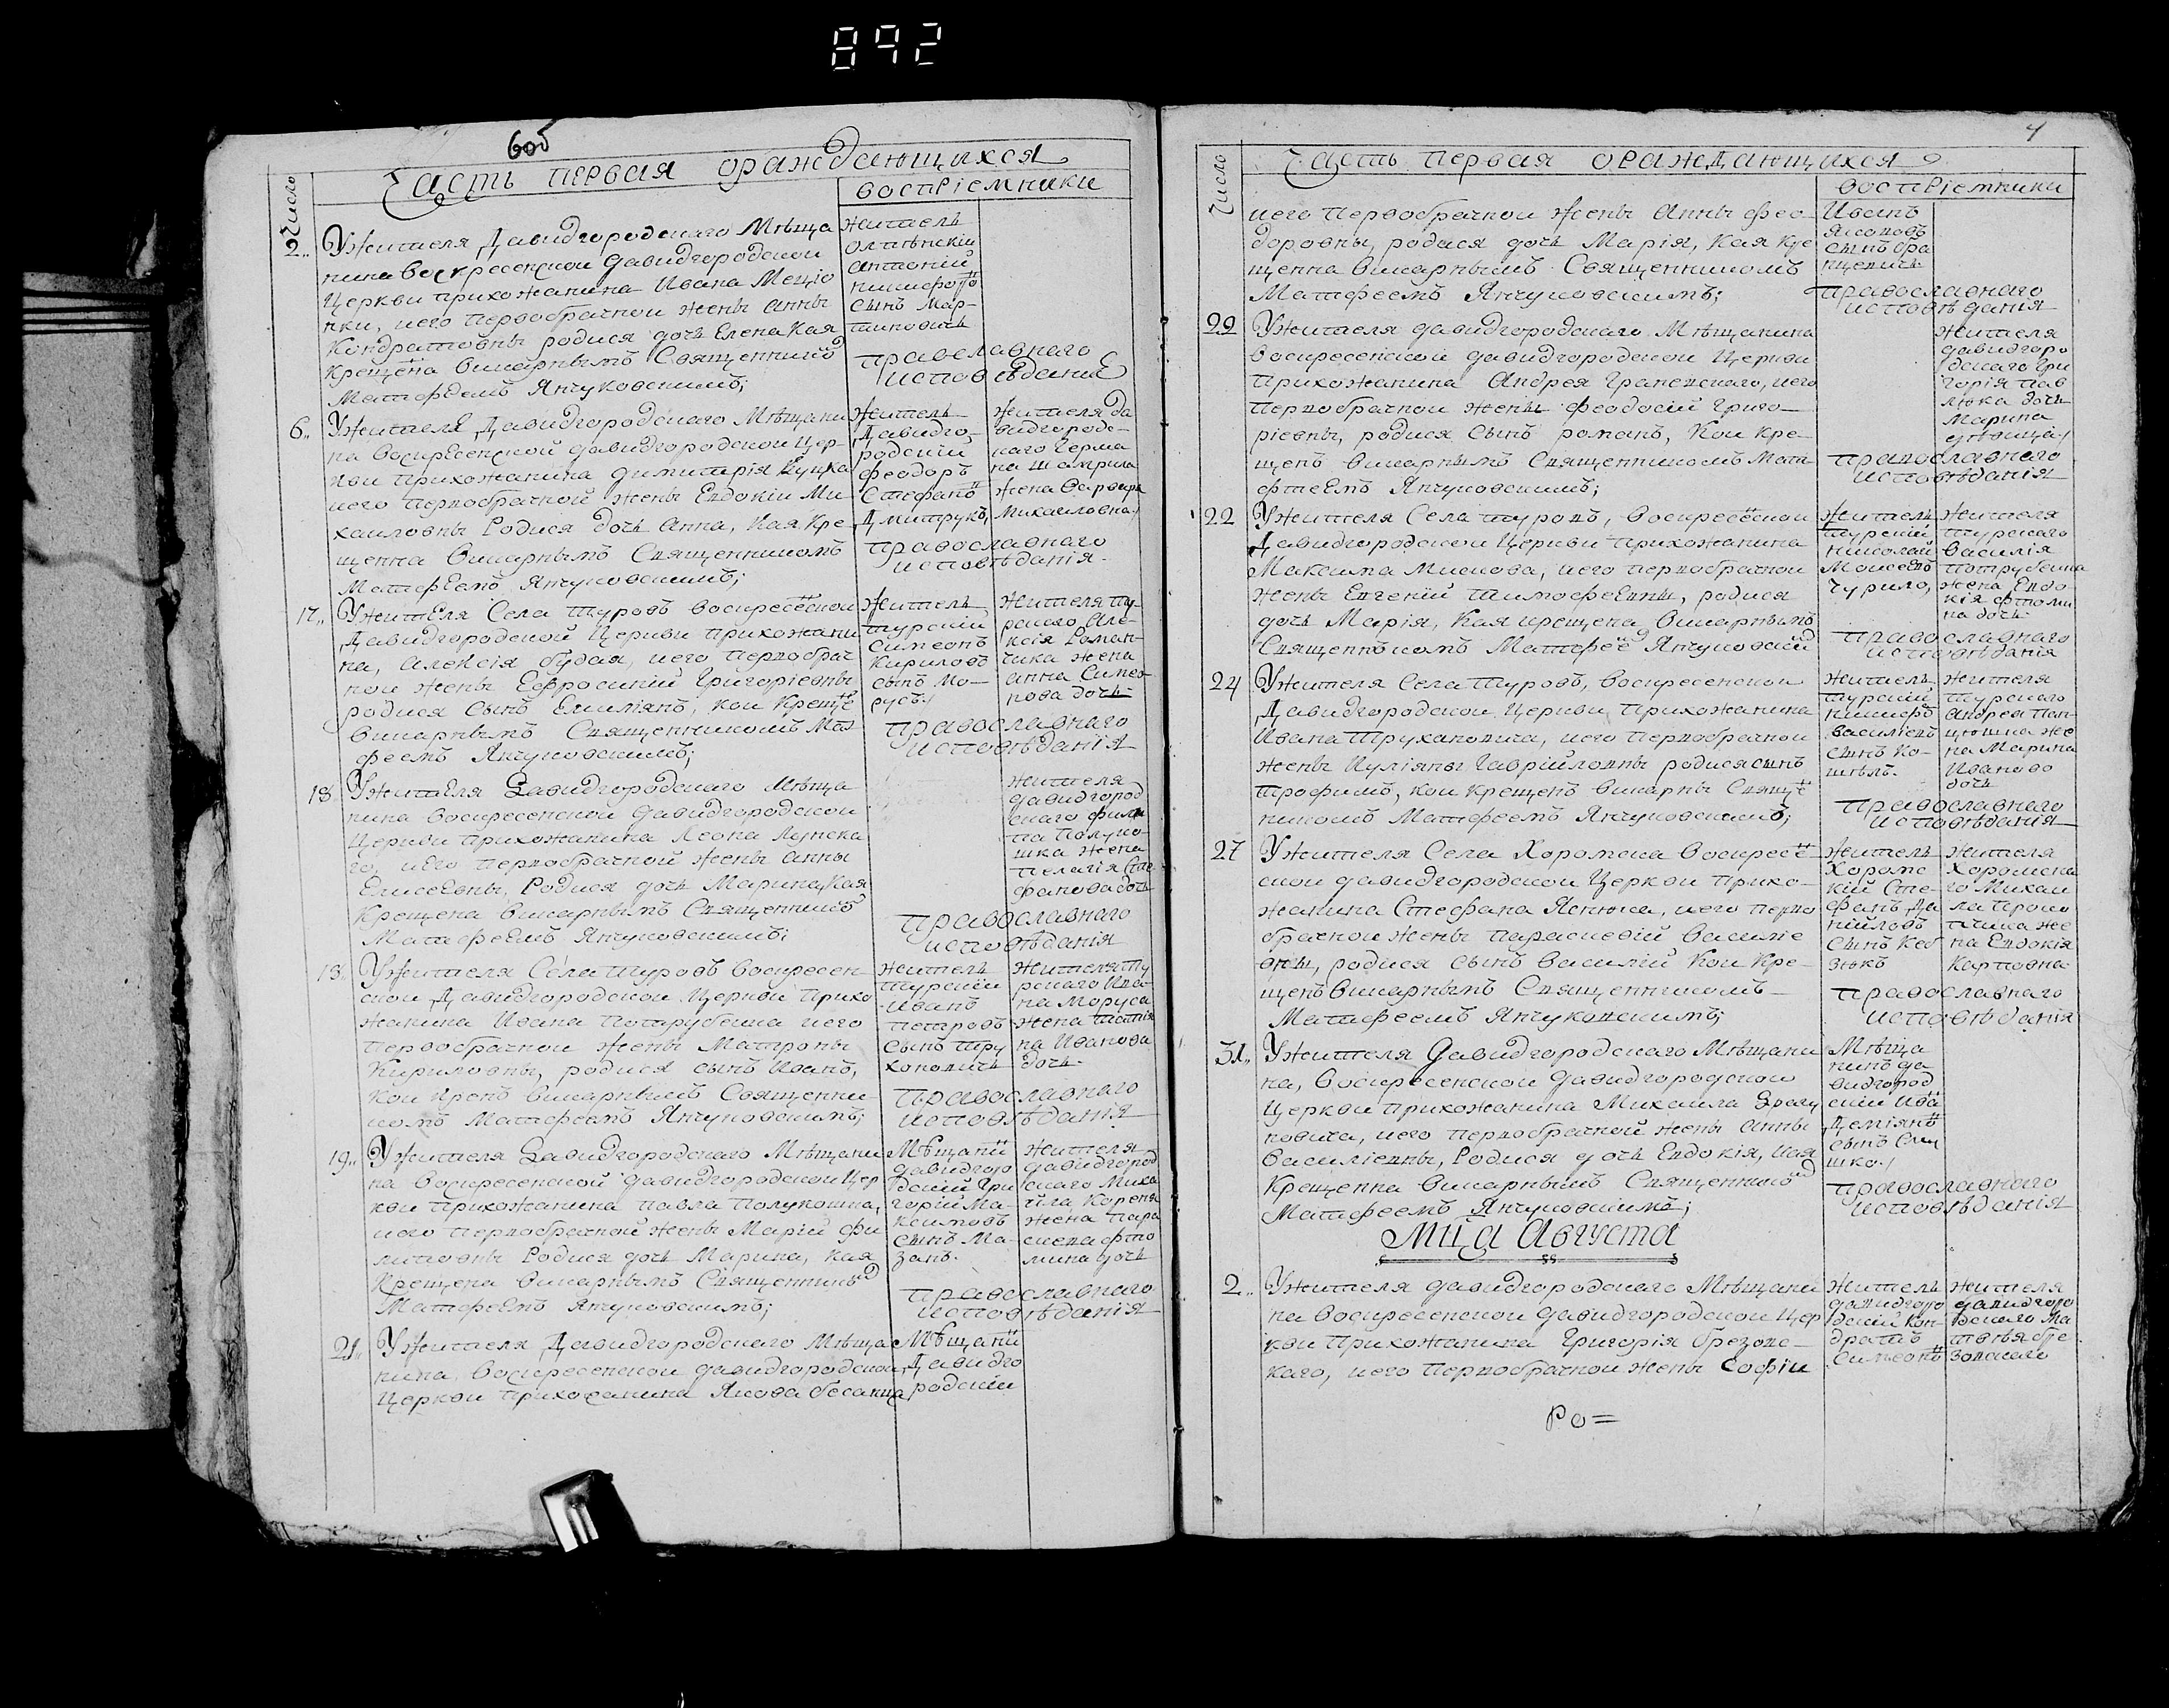 892
606
Часть первая ораждающихся
Число
воспріемники
2.. У жителя Давидгородскаго Мѣща
нина воскресенской давидгородской
Церкви прихожанина Ивана
нки, иего первобрачной жены Анны
Кондратовны родися дочь Елена Кая
крещена викарнымъ Священником
Матфеемъ Янчуковскимъ;
житель
Антоній
сынъ Мар-
тиновичъ
православнаго
исповѣданія
6.. У жителя Давидгородскаго Мѣщани
на воскресенской давидгородской Цер-
кви прихожанина димитрія Куцка
иего первобрачной жены Евдокіи Ми-
хаиловны Родися дочь Анна, Кая Кре-
щенна викарнымъ Священникомъ
Матфеемъ Янчуковскимъ;
житель
Давидго-
родскій
феодоръ
Стефанъ
Дмитрукъ,
жителя да
видгородс-
каго Герма
на
жена Варвара
Михаиловна
православнаго
исповѣданія.
17.. У жителя Села туровъ воскресенской
Давидгородской Церкви прихожани
на, Алексія будая, иего первобрач
ной жены Ефросиніи Григоріевны
родися сынъ Емиліянъ, кои Креще
викарнымъ Священникомъ Мат
феемъ Янчуковскимъ;
житель
турскій
Симеонъ
Кириловъ
сынъ Мо-
русъ
жителя ту-
рскаго Але-
ксія Роман-
чика жена
Анна Симео-
нова дочь
православнаго
исповѣданія
18 У жителя Давидгородскаго Мѣща
нина воскресенской давидгородской
Церкви прихожанина Леона Лунска
го, иего первобрачной жены Анны
Елисеевны, Родися дочь Марина, Кая
Крещена викарнымъ Священником
Матфеемъ Янчуковскимъ;
жителя
давидгород
скаго фили
па Полуко-
шка жена
пелагія Сте
фанова дочь
православнаго
исповѣданія
18.. У жителя Села туровъ воскресен
ской Давидгородской Церкви прихо
жанина Ивана Потрубейка иего
первобрачной жены Матроны
Кириловны, родися сынъ Иванъ,
кои крещ викарнымъ Священни-
комъ Матфеемъ Янчуковскимъ;
житель
турскій
Иванъ
петровъ
сынъ тру
хоновичъ
жителя ту
рскаго Ива-
на Моруса
жена
на Иванова
дочь
православнаго
исповѣданія
19.. У жителя Давидгородскаго Мѣщани
на Воскресенской давидгородской Цер
кви прихожанина павла Полукошка,
иего первобрачной жены Маріи фи
липовны Родися дочь Марина, кая
Крещена викарнымъ Священником
Матфеемъ Янчуковскимъ;
Мѣщани
давидгоро
дскій Гри
горій Ма-
ксимовъ
сынъ Ма-
занъ.
жителя
давидгород
скаго Миха
ила Кореня
жена Пара
скева фто
мина дочь
православнаго
исповѣданія
21.. У жителя Давидгородскаго Мѣща
нина, воскресенской давидгородской
Церкви прихожанина Якова
Мѣщани
Давидго
родскіи
4
Часть первая ораждающихся
Число
воспріемники
иего Первобрачной жены Анны фео-
доровны, родися дочь Марія, Кая кре
щенна викарнымъ Священникомъ
Матфеемъ Янчуковскимъ;
Иванъ
Якововъ
сынъ
православнаго
исповѣданія
22 У жителя давидгородскаго Мѣщанина
воскресенской давидгородской Церкви
Прихожанина Андрея Граневскаго, иего
первобрачной жены феодосіи Григо-
ріевны, родися Сынъ романъ, Кои кре-
щенъ викарнымъ Священникомъ Мат
фтеемъ Янчуковскимъ;
жителя
давидгоро
дскаго Гри
горія пав
люка дочь
Марина
православнаго
исповѣданія
22 У жителя Села туровъ, воскресенской
Давидгородской Церкви Прихожанина
Максима, иего первобрачной
жены Евгеніи Тимофеевны, родися
дочь Марія, Кая крещена викарнымъ
Священникомъ Матфее Янчуковским
житель
турскій
николай
Моисеев
Чурило,
жителя
турскаго
василія
потрубейка
жена Евдо-
кія фтоми
на дочь
православнаго
исповѣданія
24 У жителя Села Туровъ, воскресенской
Давидгородской Церкви Прихожанина
Ивана Трухановича, иего первобрачной
жены Иуліяны Гавріиловны родися сынъ
трофимъ, кои крещенъ викарны Свяще
никомъ Матфеемъ Янчуковскимъ;
житель
турскій
никифо
василіевъ
сынъ Ко-
шель.
жителя
турскаго
Андрея Пан-
цюшка же
на Марина
Иваново
дочь
православнаго
исповѣданія
27 У жителя Села Хоромска воскресе-
ской давидгородской Церкви Прихо-
жанина Стефана Яснюка, иего перво
брачной жены параскевіи Василіе
вны, родися сынъ василій Кои Кре-
щенъ викарнымъ Священникомъ
Матфеемъ Янчуковскимъ;
житель
Хоромс
кій Сте-
фанъ Да
ніиловъ
сынъ Коб
зюкъ
жителя
Хоромска
го Михаи
ла Проко
пчика же
на Евдокія
Карповна
православнаго
исповѣданія
31.. У жителя Давидгородскаго Мѣщани
на, воскресенской давидгородской
Церкви прихожанина Михаила Драгу
новича, иего первобрачной жены Анны
василіевны, Родися дочь Евдокія, кая
Крещенна викарнымъ Священником
Матфеемъ Янчуковскимъ;
Мѣща
нинъ да
видгород
скій Ива
Деміянъ
сынъ Сли
шко
православнаго
исповѣданія
Мца Августа
2.. У жителя давидгородскаго Мѣщани
на воскресенской давидгородской Цер
кви Прихожанина Григорія брезовс-
каго, иего Первобрачной жены Софіи
житель
давидгоро
дскій Кон-
дратъ
Симеонъ
жителя
давидгоро
дскаго Ма
твѣя бре
зовскаго
Ро=